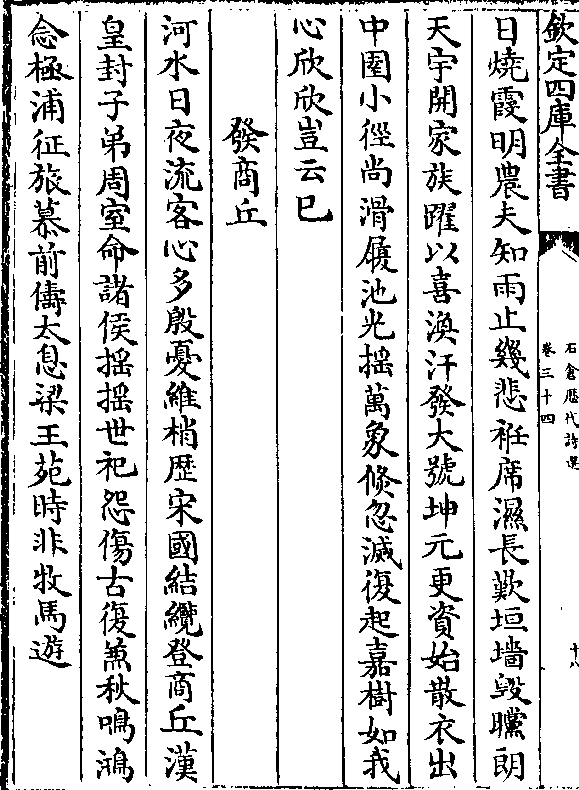 欽定四庫全書
石倉歷代詩選
卷三十四
十八
日燒霞明農夫知雨止幾悲袵席濕長歎垣墻毀曭朗
天宇開家族躍以喜渙汗發大號坤元更資始散衣出
中園小徑尚滑履池光揺萬象倏忽滅復起嘉樹如我
心欣欣豈云已
發商丘
河水日夜流客心多殷憂維梢歴宋國結纜登商丘漢
皇封子弟周室命諸侯揺揺世祀怨傷古復兼秋鳴鴻
念極浦征旅慕前儔太息梁王苑時非牧馬遊